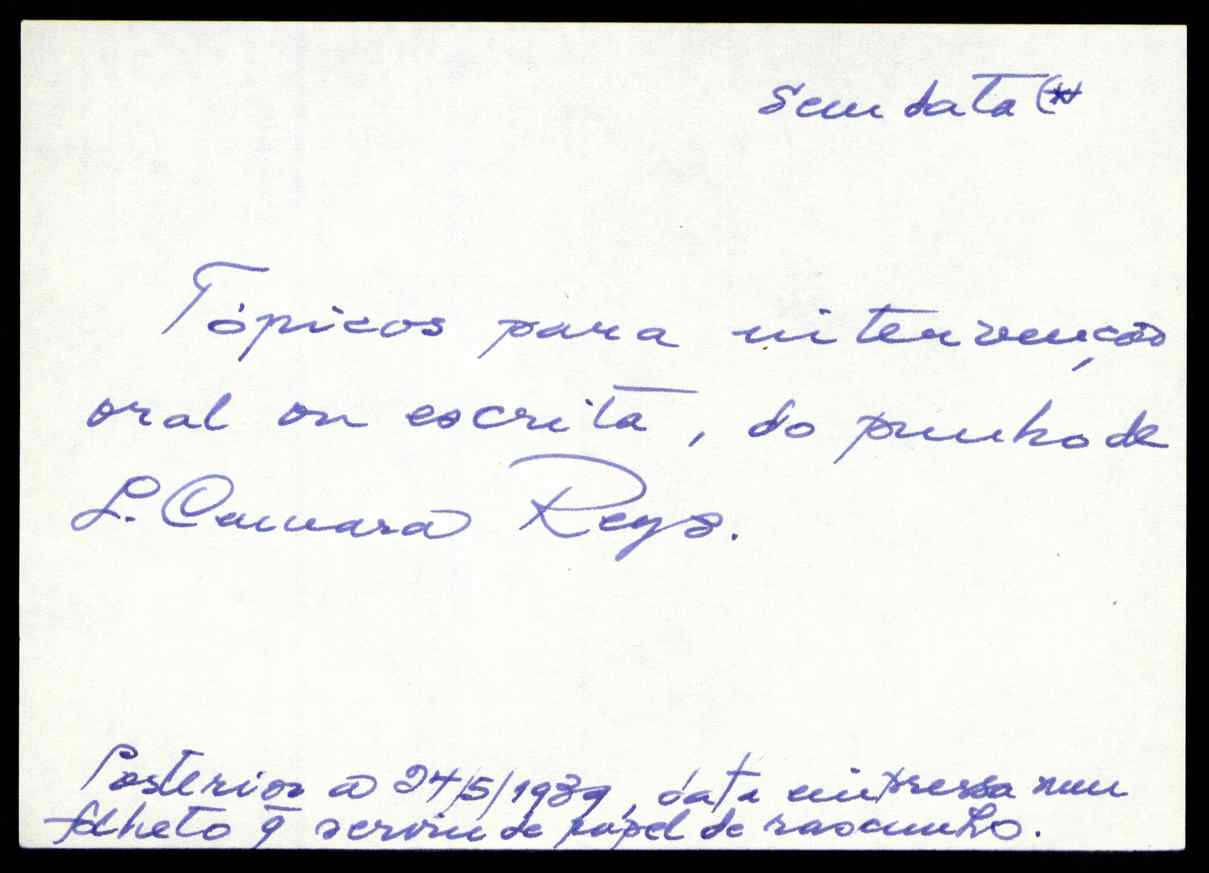 Sem data (*
Tópicos para intervenção
oral ou escrita, do punho de
L. Camara Reys.
Posterior a 24/5/1939, data impressa num
folheto q̄ serviu de papel de rascunho.